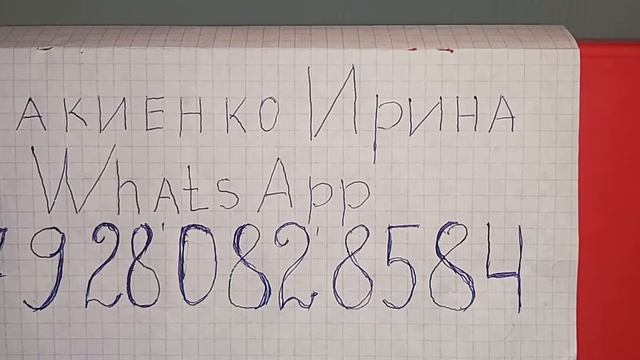 акиенко Ирина
WhatsApp
928 082 8584